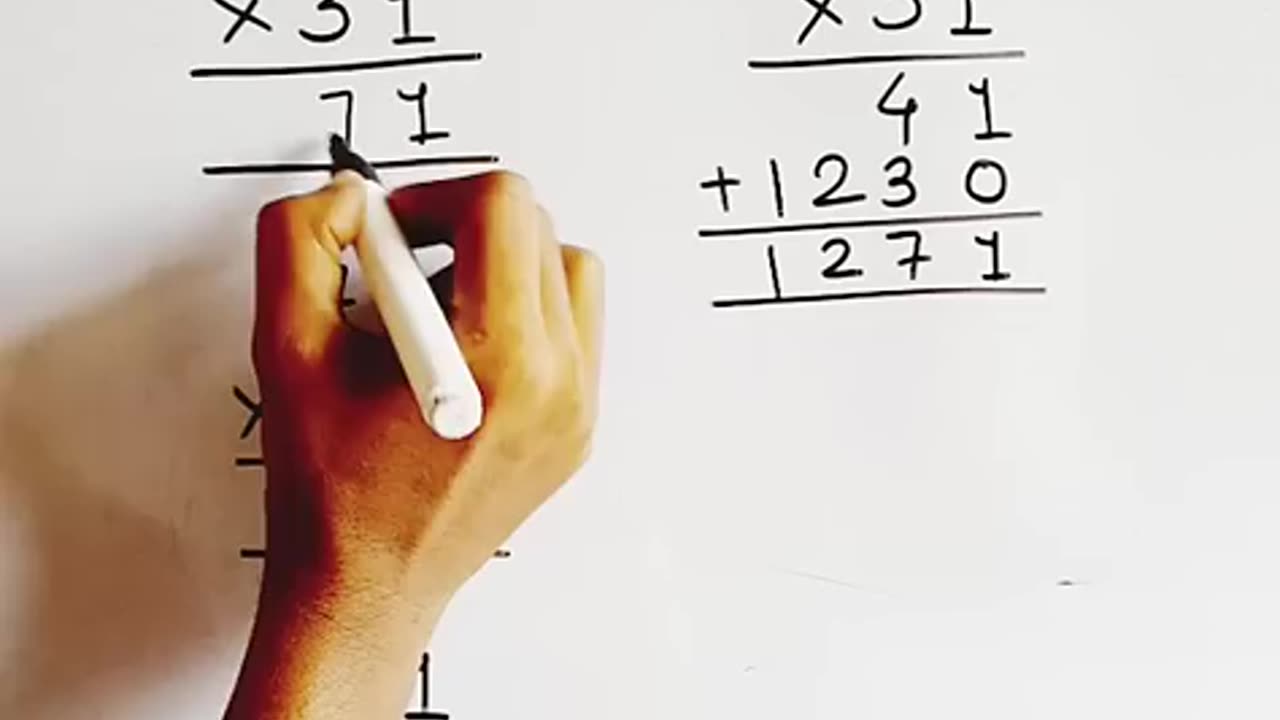 × 31
71
× 31
41
+1230
1271
×
1